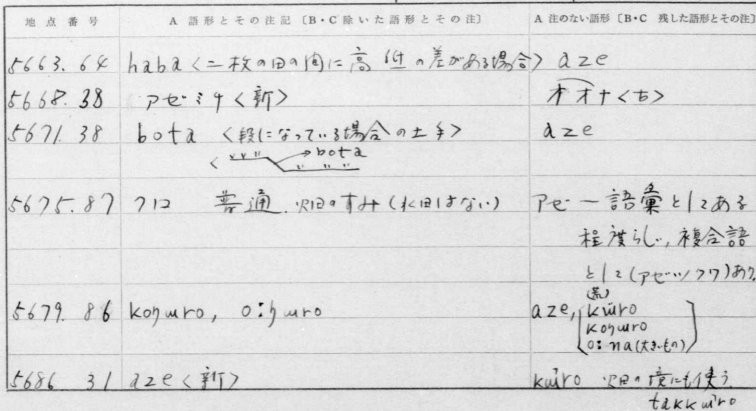 地点番号 A 語形とその注記〔B・C 除いた語形とその注〕 A 注のない語形〔B・C 残した語形とその注〕
5663. 64 haba <二枚の田の間に高低の差がある場合> aze
5668. 38 アゼミチ<新> オオナ<古>
5671. 38 bota <段になっている場合の土手> aze
→bota
5675. 87 クロ 普通. 畑のすみ(水田はない) アゼ ー語彙としてある
程度らしい. 複合語
として(アゼッツワ)あり.
5679. 86 koŋɯro, o:ŋɯro aze, kɯ̈ro
koŋɯro
o:na(大きいもの)
5686 31 aze<新> kɯ̈ro 畑の境にも使う
takkɯ̈ro